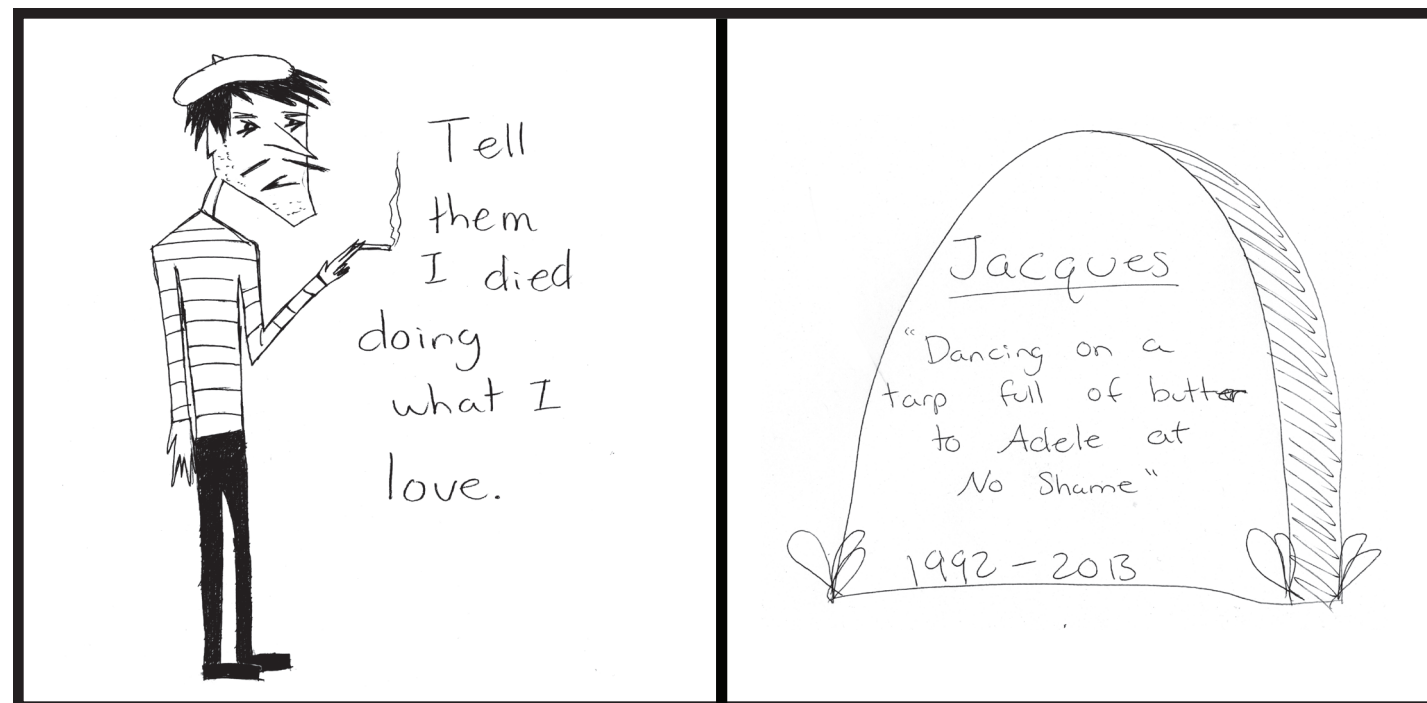 Tell
them
I died
doing
what I
love.
Jacques
"Dancing on a
tarp full of butter
to Adele at
No Shame"
1992 - 2013